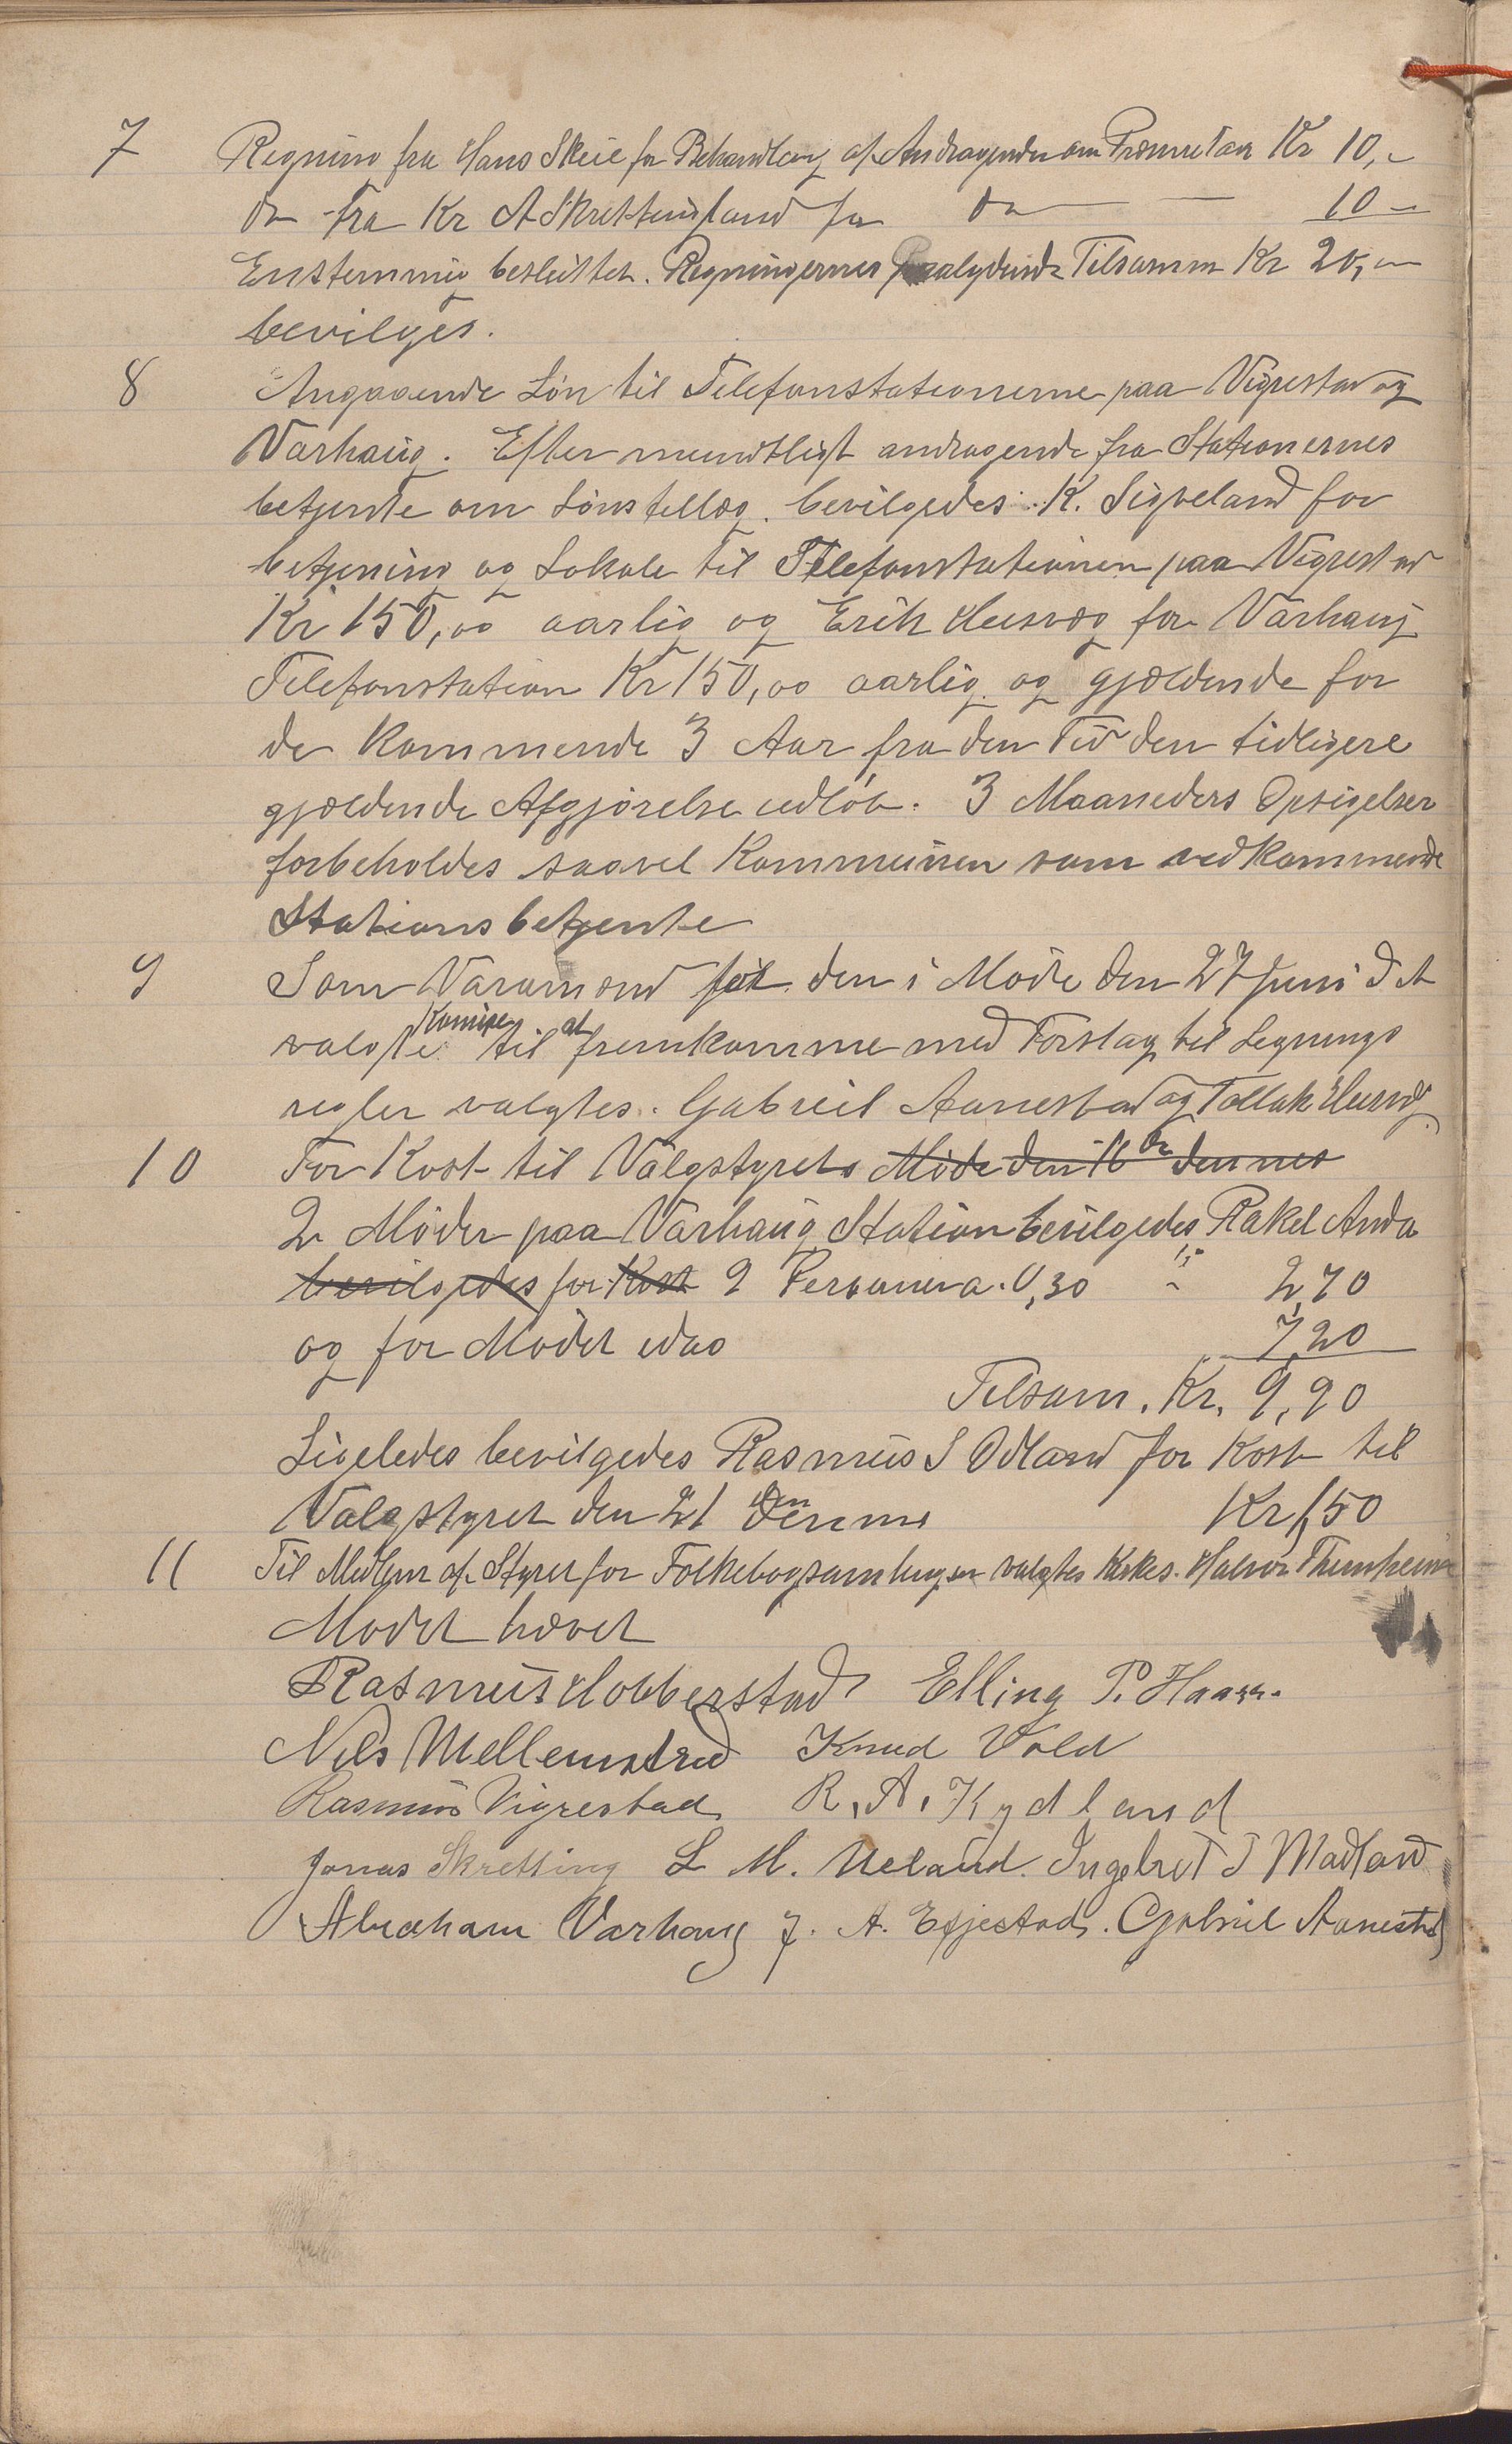 7 Regning fra Hans Skeie for Behandling af Andragender om Kr 10,-
do fra Kr A Skrettingland for do — 10 -
Enstemmig besluttet. Regningernes Paalydende Tilsamm Kr 20,-
bevilges.
8 Angaaende Løn til Telefonstationerne paa Vigrestad og
Varhaug. Efter mundtligt andragende fra Stationernes
betjente om Lønstillæg. bevilgedes K. Sigveland for
betjening og Lokale til Telefonstationen paa Vigrestad
Kr 150,00 aarlig og Erik Husvæg for Varhaug
Telefonstation Kr 150,00 aarlig og gjældende for
de kommende 3 Aar fra den Tid den tidligere
gjældende Afgjørelse udløb. 3 Maaneders Opsigelser
forbeholdes saavel Kommunen som vedkommende
Stationsbetjente
9 Som Varamænd for den i Møde den 27 Juni d A
valgte Komite til at fremkomme med Forslag til Legnings
regler valgtes. Gabriel Aanestad og Tollak Husvæg
10 For Kost til Valgstyrets Møde den 16 de dennes
2 Møder paa Varhaug Station bevilgedes Rakel Anda
bevilgedes for Kost 9 Personer a. 0,30 " 2,70
og for Mødet idag 7,20
Tilsam. Kr. 9,90
Ligeledes bevilgedes Rasmus S Ødland for Kost til
Valgstyret den 21 den dennes Kr 1,50
11 Til Medlem af Styret for Folkebogsamlingen valgtes Kirkes. Halvor
Mødet hævet
Rasmus Hobberstad Elling P. Haar.
Nils Mellemstrød Knud Vold
Rasmus Vigrestad R. A. Kydland
Jonas Skretting L M. Ueland. Ingebret T Madland
Abraham Varhaug J. A. Efjestad. Gabriel Aanestad